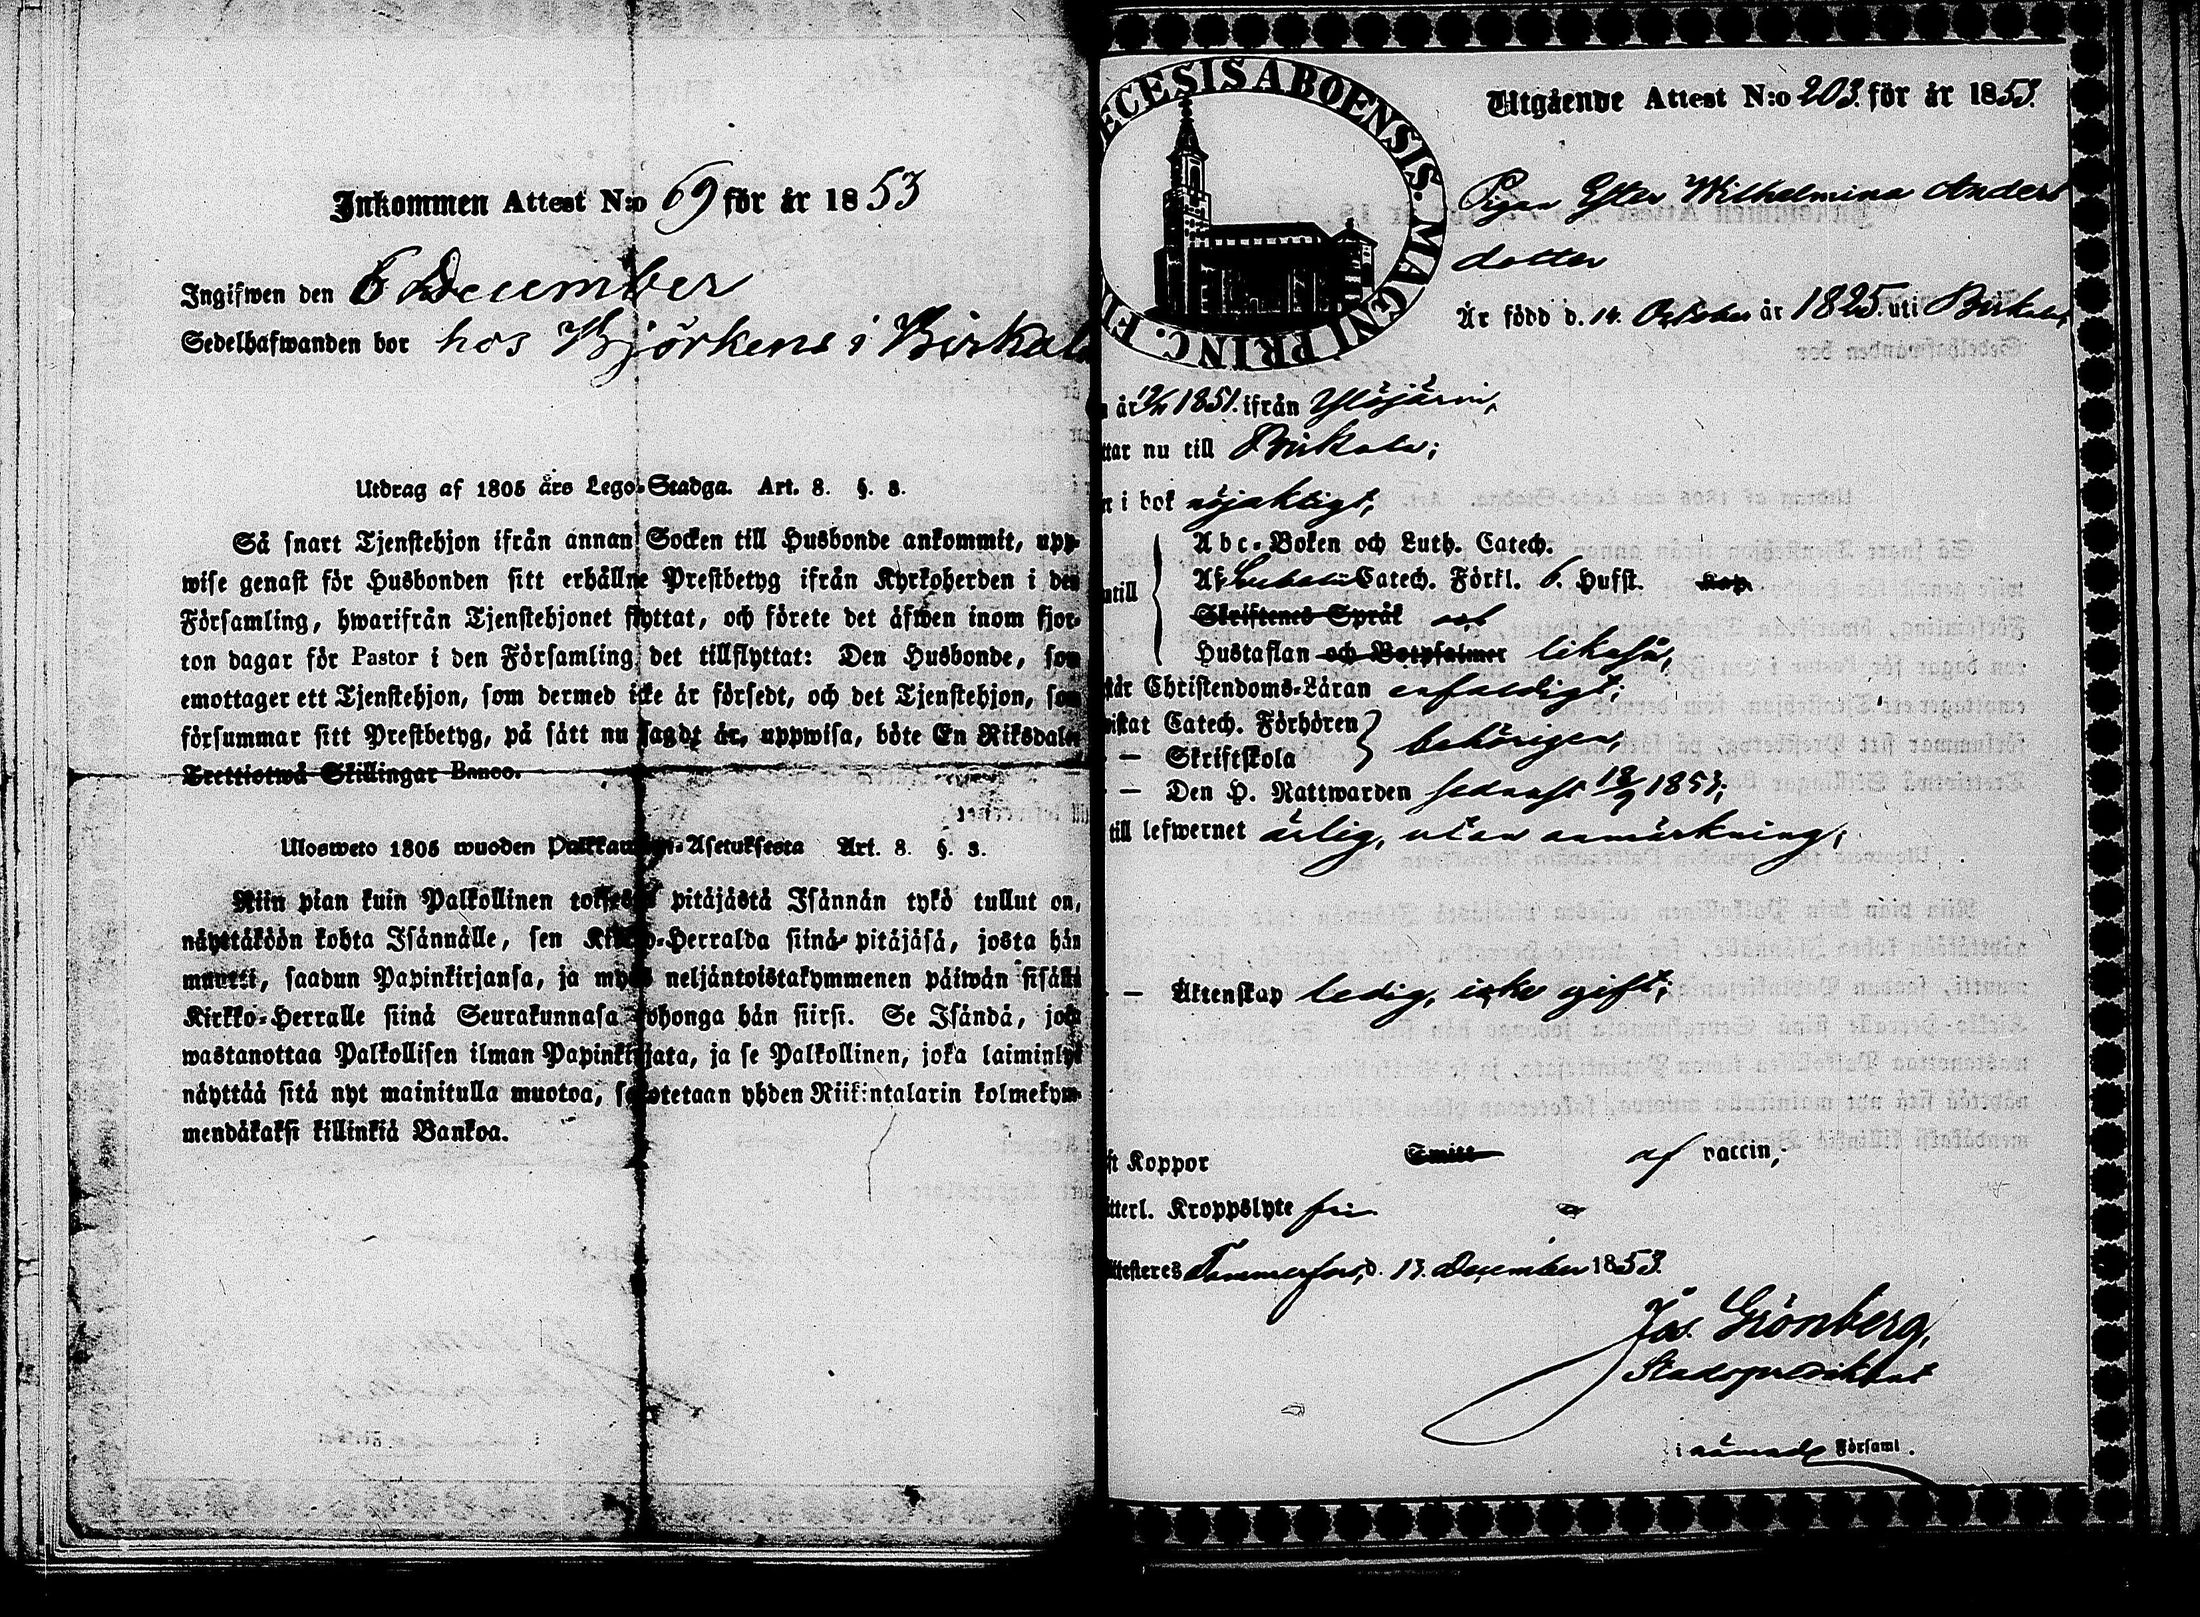 Inkommen Attest N:o 69 för år 1853
Ingifwen den 6 December
Sedelhafwanden bor hos Björkens i Birkala
Utdrag af 1805 års Lego-Stadga. Art. 8. §. 3.
Så snart Tjenstehjon ifrån annan Socken till Husbonde ankommit, upp-
wise genast för Husbonden sitt erhållne Prestbetyg ifrån Kyrkoherden i den
Församling, hwarifrån Tjenstehjonet flyttat, och förete det äfwen inom fjor-
ton dagar för Pastor i den Församling det tillflyttat: Den Husbonde, som
emottager ett Tjenstehjon, som dermed icke är försedt, och det Tjenstehjon, som
försummar sitt Prestbetyg, på sätt nu sagdt är, uppwisa, böte En Riksdaler
Trettiotwå Skillingar Banco.
Ulosweto 1805 wuoden Palkkawäen-Asetuksesta Art. 8. §. 3.
Niin pian kuin Palkollinen toisesta pitäjästä Isännän tykö tullut on,
näyttäköön kohta Isännälle, sen Kirkko-Herralda siinä pitäjäsä, josta hän
muutti, saadun Papinkirjansa, ja myös neljäntoistakymmenen päiwän sisällä
Kirkko-Herralle siinä Seurakunnasa johonga hän siirsi. Se Isändä, joka
wastanottaa Palkollisen ilman Papinkirjata, ja se Palkollinen, joka laiminlyö
näyttää sitä nyt mainitulla muotoa, sakotetaan yhden Riikintalarin kolmekym-
mendäkaksi killinkiä Bankoa.
ECESIS ABOENSIS. MAGNI PRINC. FI
Utgående Attest N:o 203. för år 1853.
Pigan Ester Wilhelmina Anders
dotter
Är född d. 14. October år 1825. uti Birkala,
år 1851. ifrån Ylöjärvi,
ttar nu till Birkala;
n i bok nöjaktigt;
Abc-Boken och Luth. Catech.
Af Catech. Förkl. 6. Hufst. Kap.
ntill
Skriftenes Språk
Hustaflan och Botpsalmer likaså,
tår Christendoms-Läran enfaldigt;
wistat Catech. Förhören
— Skriftskola behörigen,
— Den H. Nattwarden sednast 18/9 1853;
till lefwernet ärlig, utan anmärkning;
— Äktenskap ledig, icke gift;
ft Koppor Smitt af vaccin;
tterl. Kroppslyte fri
Attesteres Tammerfors, d. 13. December 1853.
Jos. Grönberg,
Stadspredikant
i nämnde Församl.